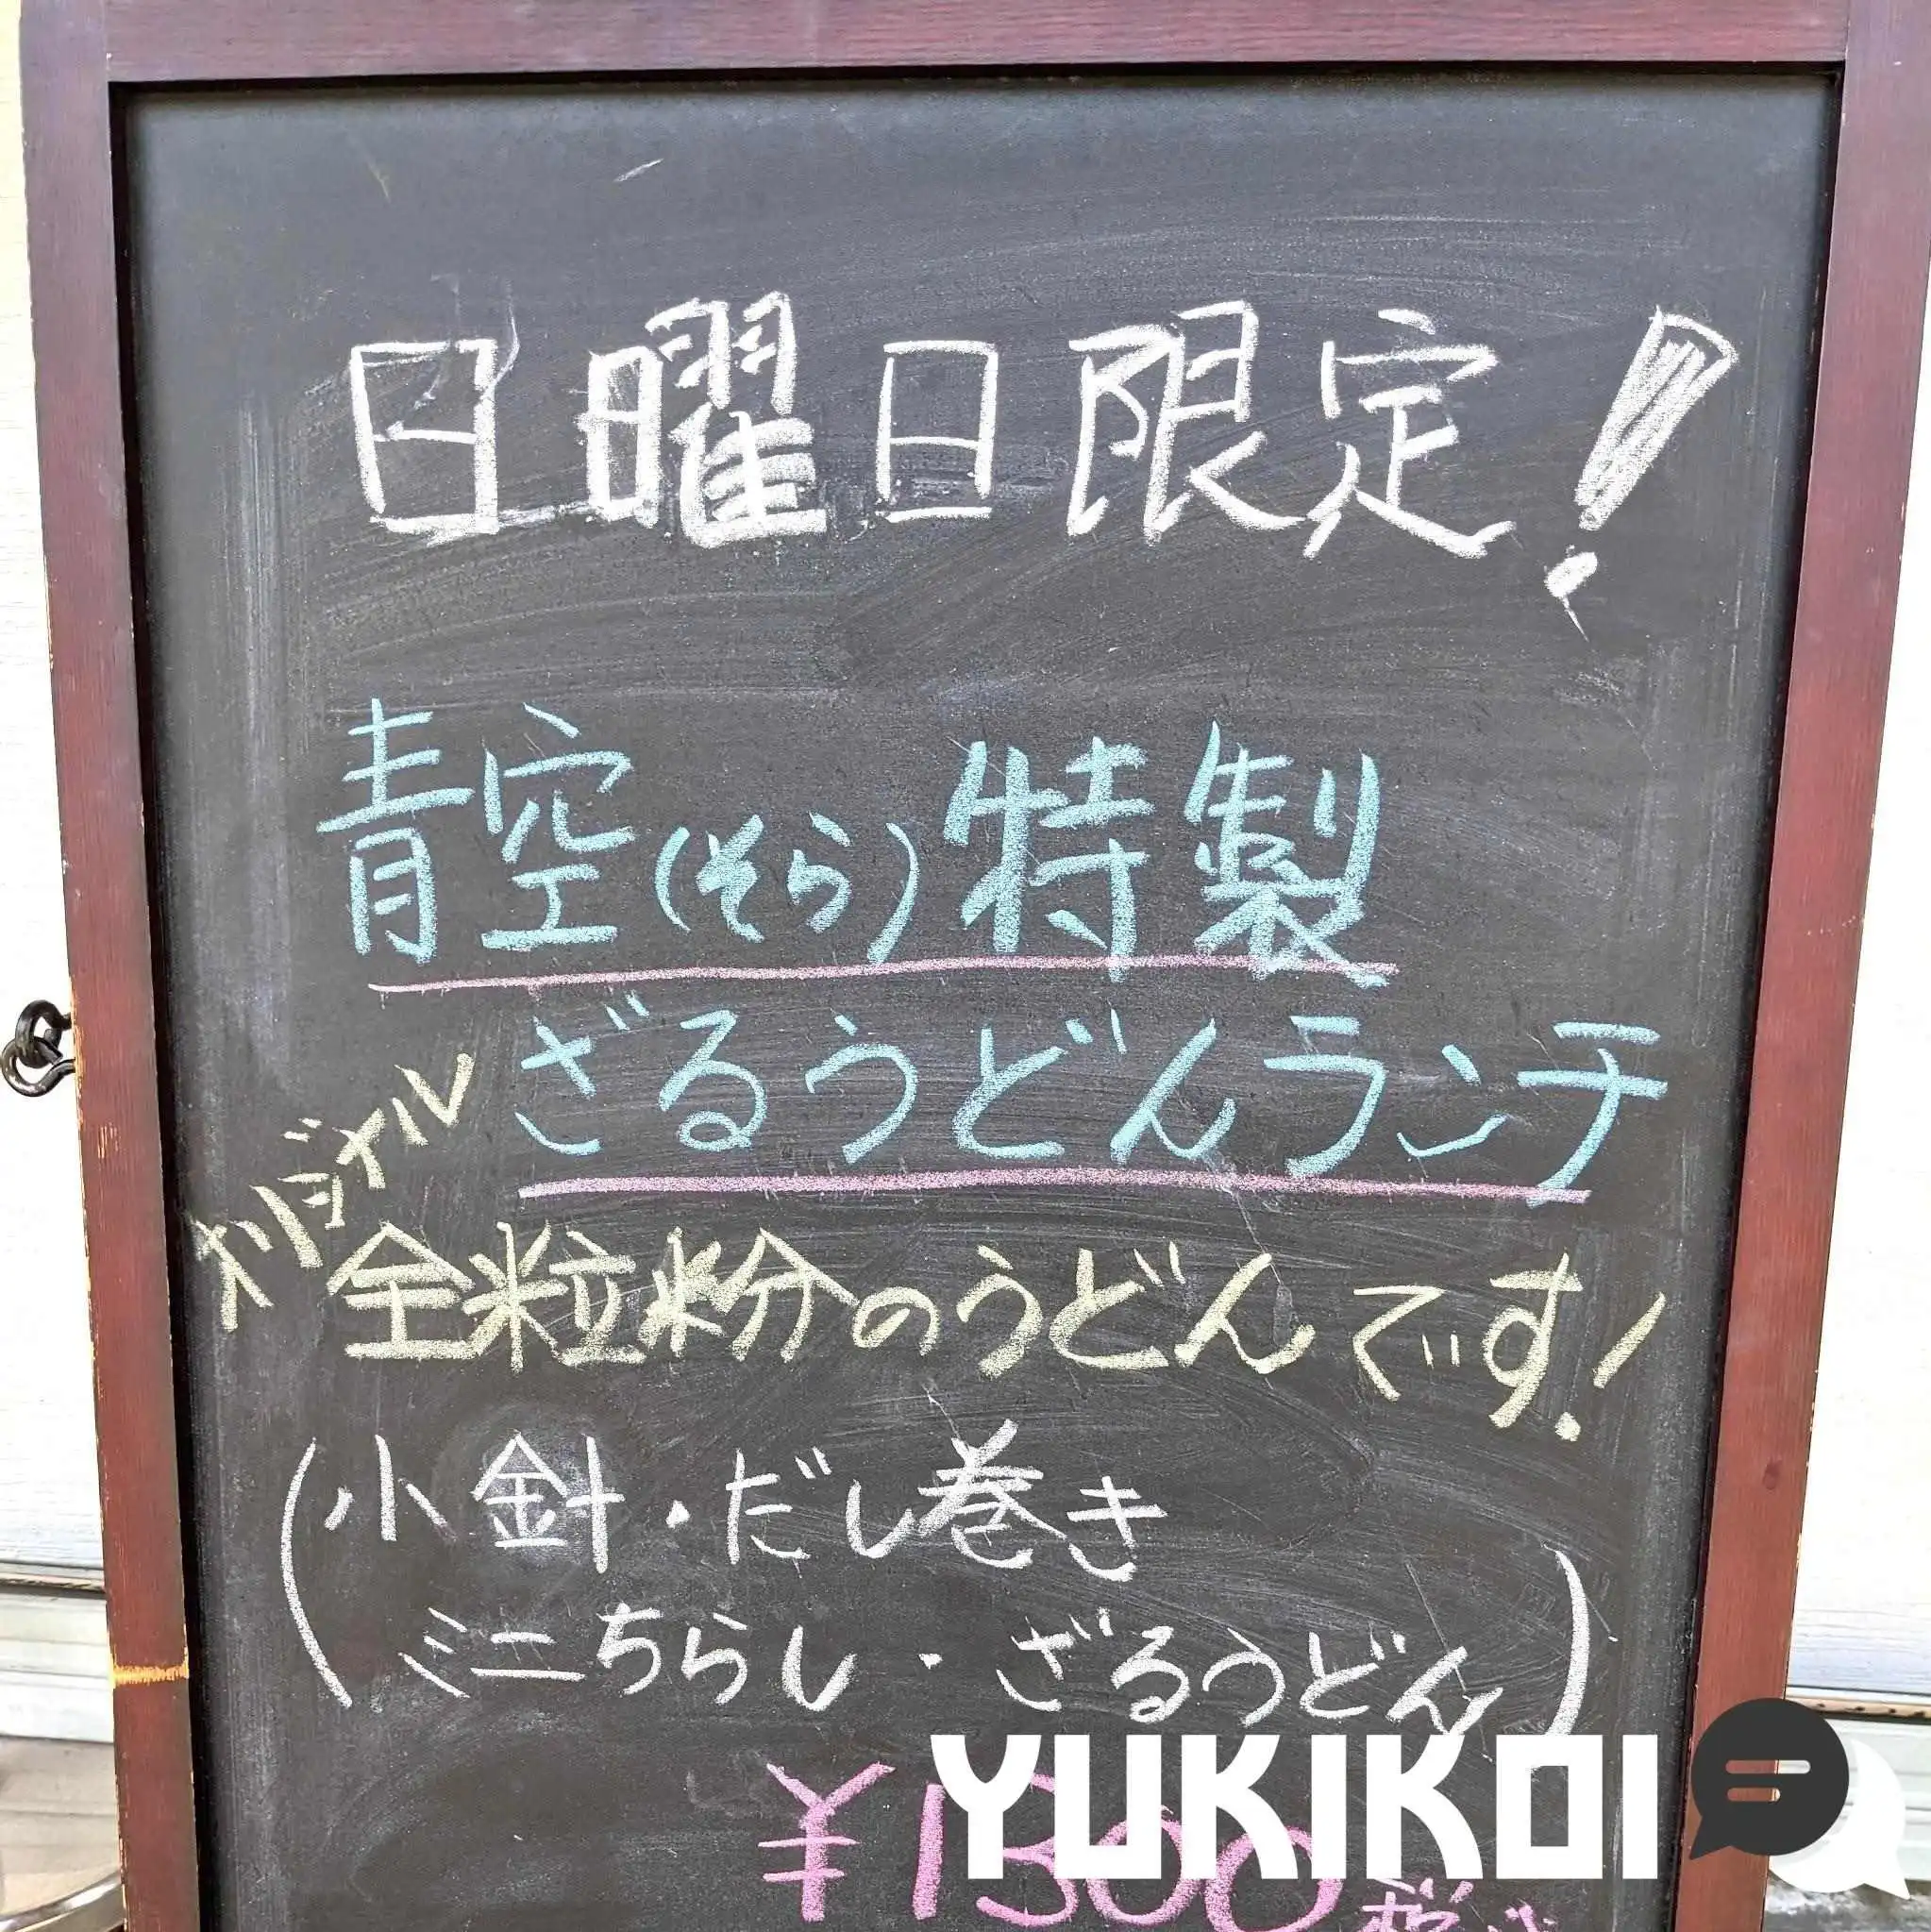 日曜日限定!
青空(そら)特製
ざるうどんランチ
オリジナル
全粒粉のうどんです!
(小針・だし巻き
ミニちらし・ざるうどん)
¥1300
YUKIKOI